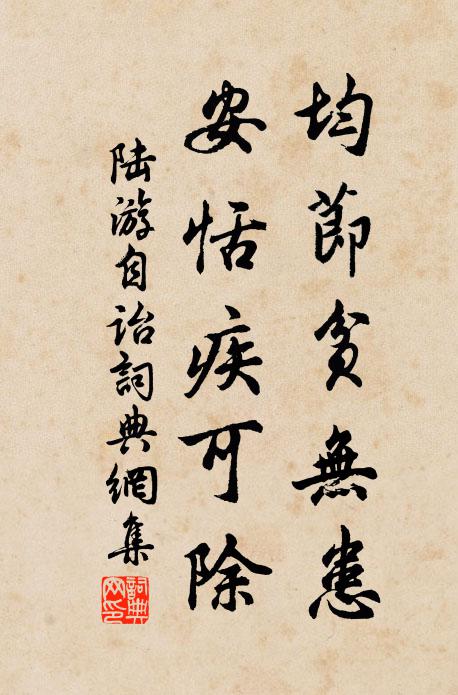 均莭貧無患
安恬疾可除
陸游自詒詞典網集
詞典網印